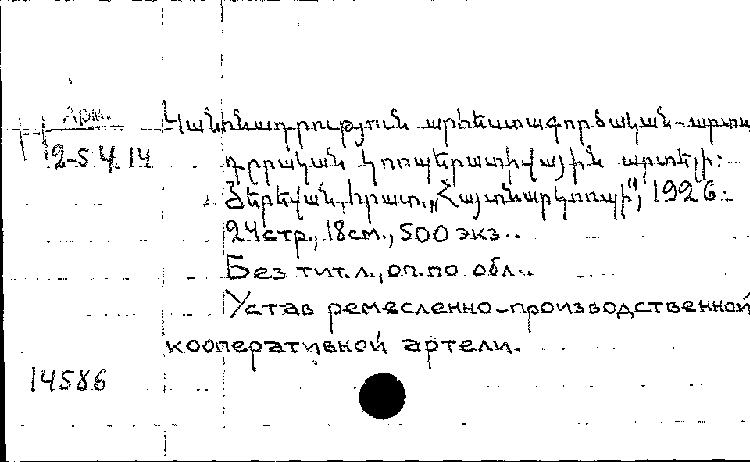 Арм.
2-54.14
Կանոնադրություն արհեստագործական-արտա
դրրական կոոպերատիվային արտելի:
Յերեվան, հրատ. „Հայտնարկոոպի", 1926.
24стр., 18см., 500 экз..
Без тит.л., оп.по обл..
Устав ремесленно-производственной
кооперативной артели.
14586